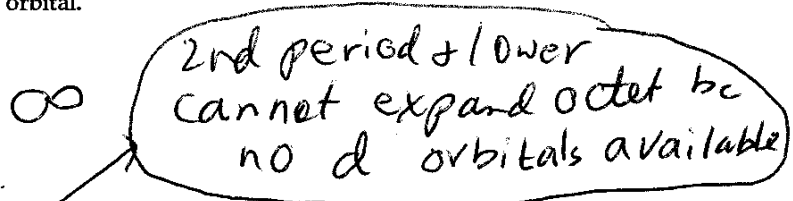 orbital.
2nd period & lower
∞ cannot expand octet bc
no d orbitals available